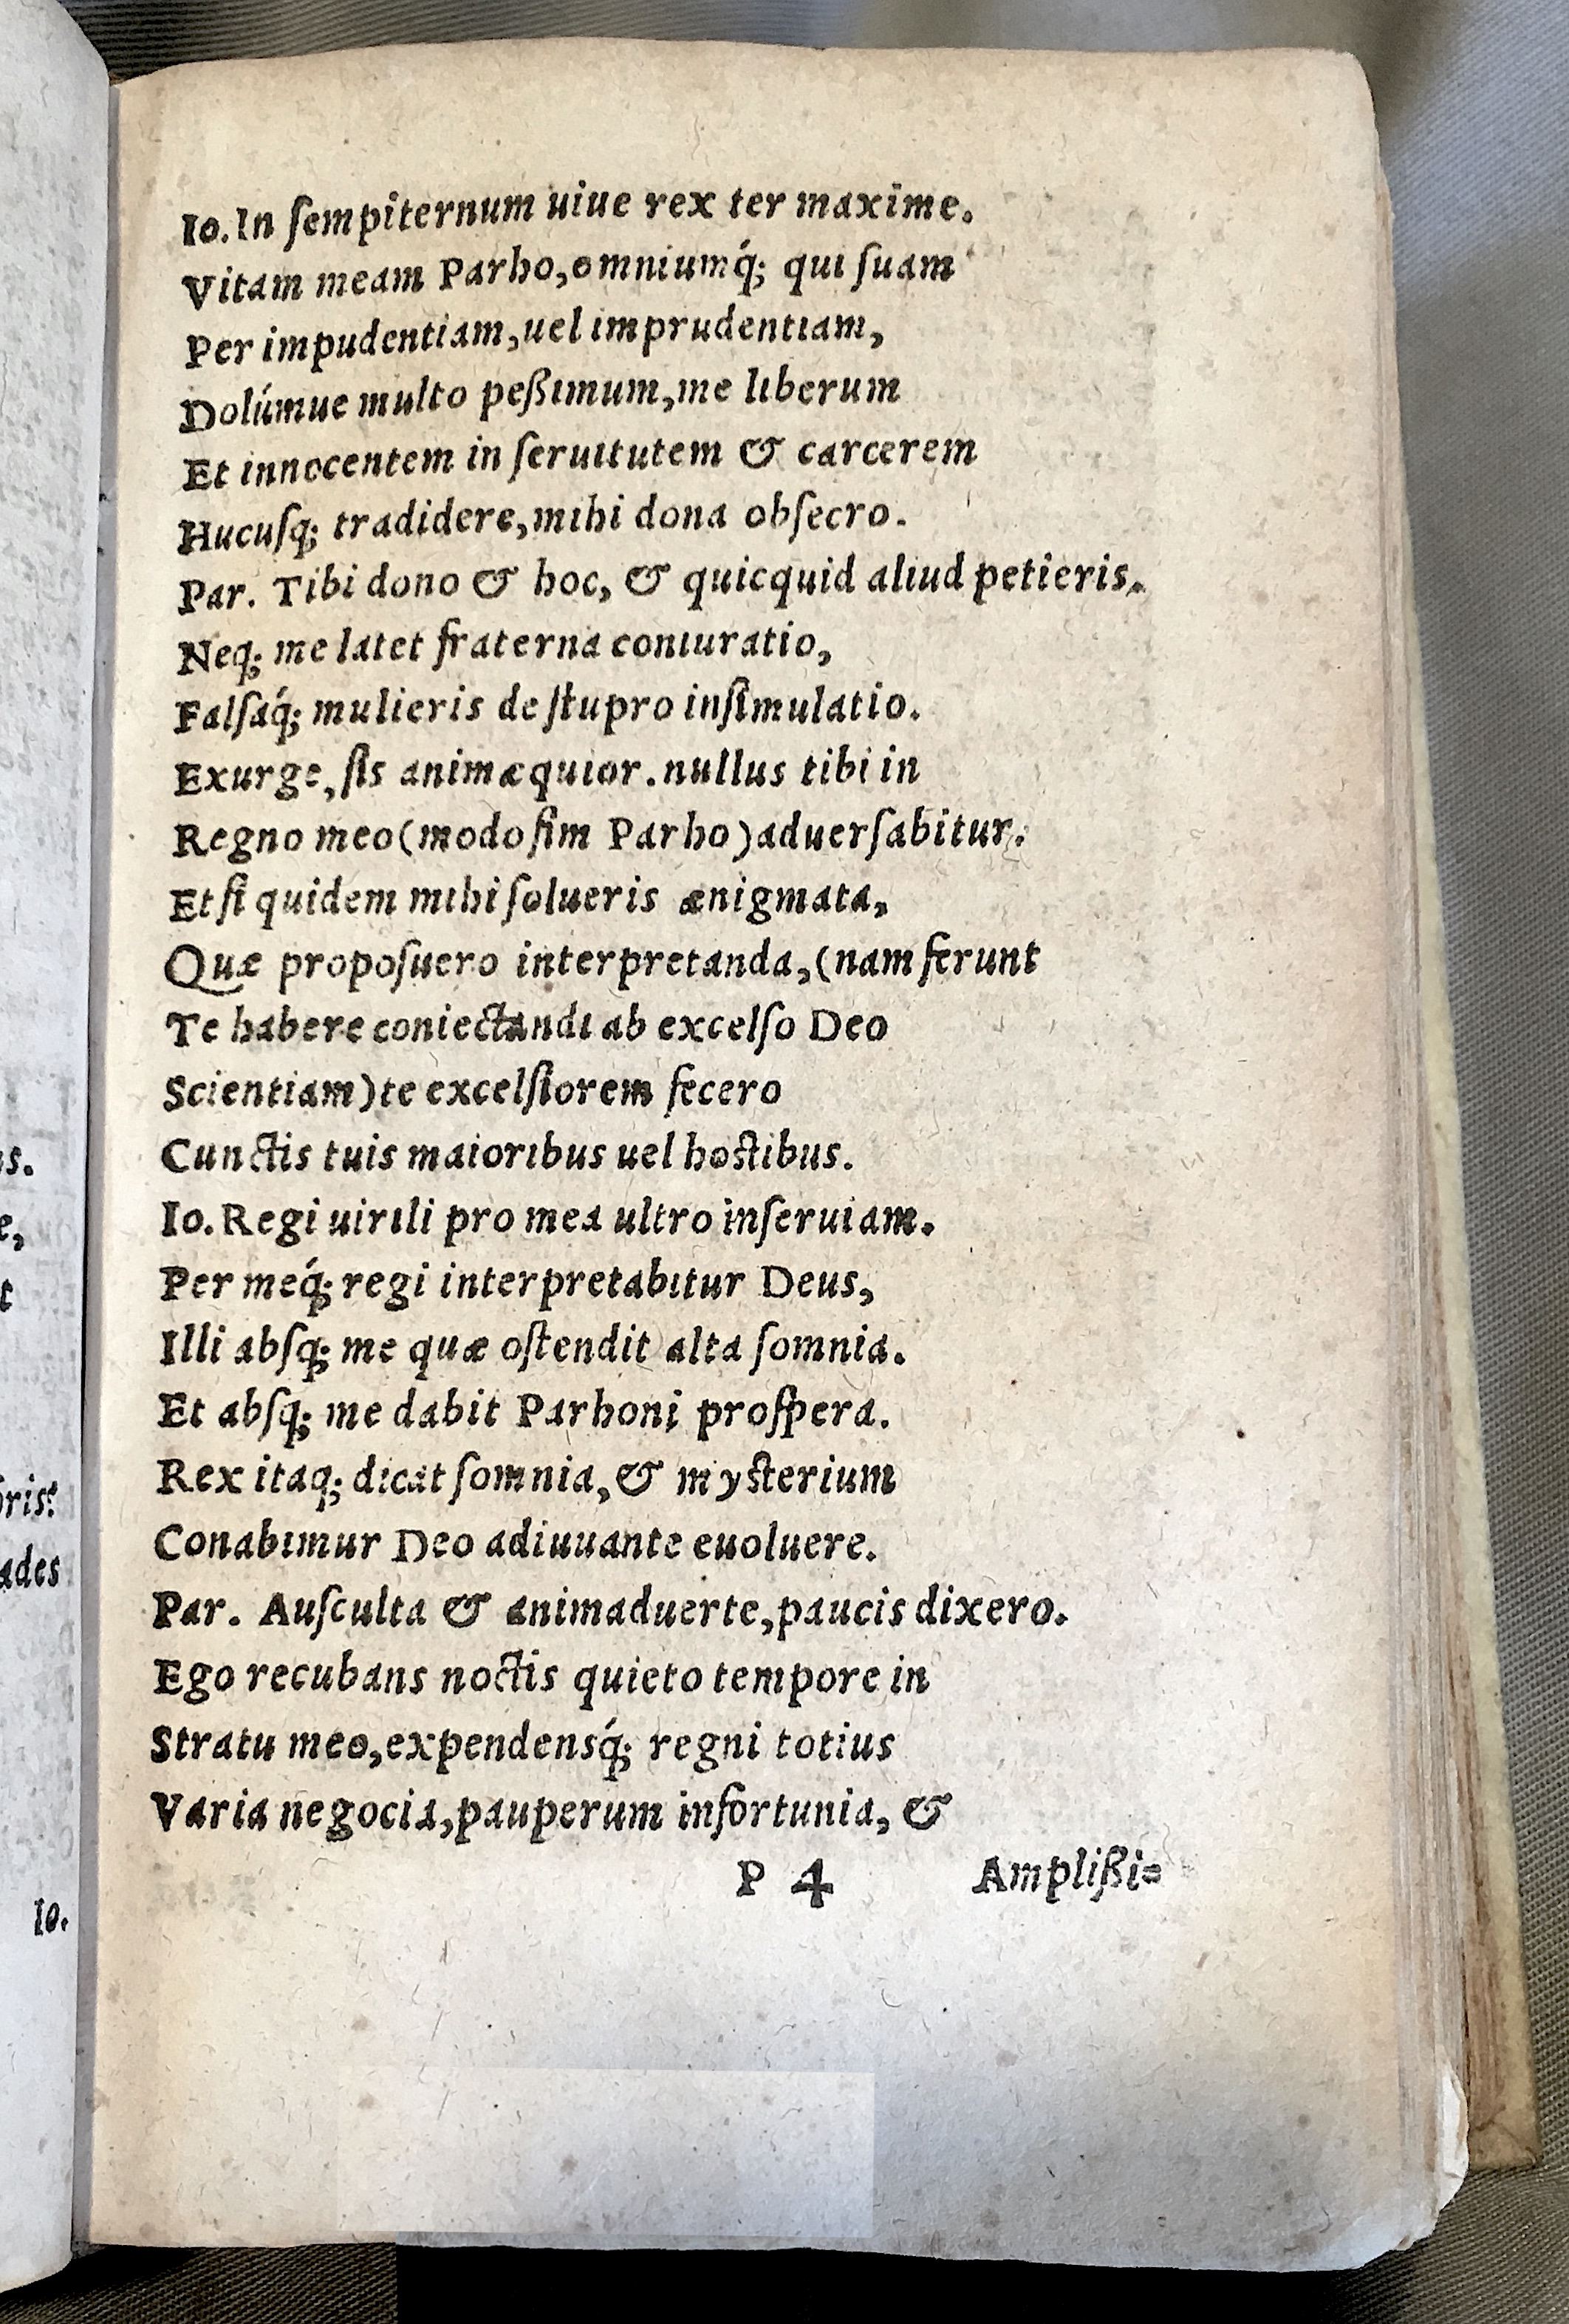 Io. In ſempiternum uiue rex ter maxime.
Vitam meam Parho, omniumq́; qui ſuam
Per impudentiam, uel imprudentiam,
Dolúmue multo peßimum, me liberum
Et innocentem in ſeruitutem & carcerem
Hucuſq; tradidere, mihi dona obſecro.
Par. Tibi dono & hoc, & quicquid aliud petieris.
Neq; me latet fraterna coniuratio,
Falſaq́; mulieris de ſtupro inſimulatio.
Exurge, ſis animæquior. nullus tibi in
Regno meo (modo ſim Parho) aduerſabitur.
Et ſi quidem mihi ſolueris ænigmata,
Quæ propoſuero interpretanda, (nam ferunt
Te habere coniectandi ab excelſo Deo
Scientiam) te excelſiorem fecero
Cunctis tuis maioribus uel hoſtibus.
Io. Regi uirili pro mea ultro inſeruiam.
Per meq́; regi interpretabitur Deus,
Illi abſq; me quæ oſtendit alta ſomnia.
Et abſq; me dabit Parhoni proſpera.
Rex itaq; dicat ſomnia, & myſterium
Conabimur Deo adiuuante euoluere.
Par. Auſculta & animaduerte, paucis dixero.
Ego recubans noctis quieto tempore in
Stratu meo, expendensq́; regni totius
Varia negocia, pauperum infortunia, &
P 4 Amplißi=
s.
e,
t
ades
Io.